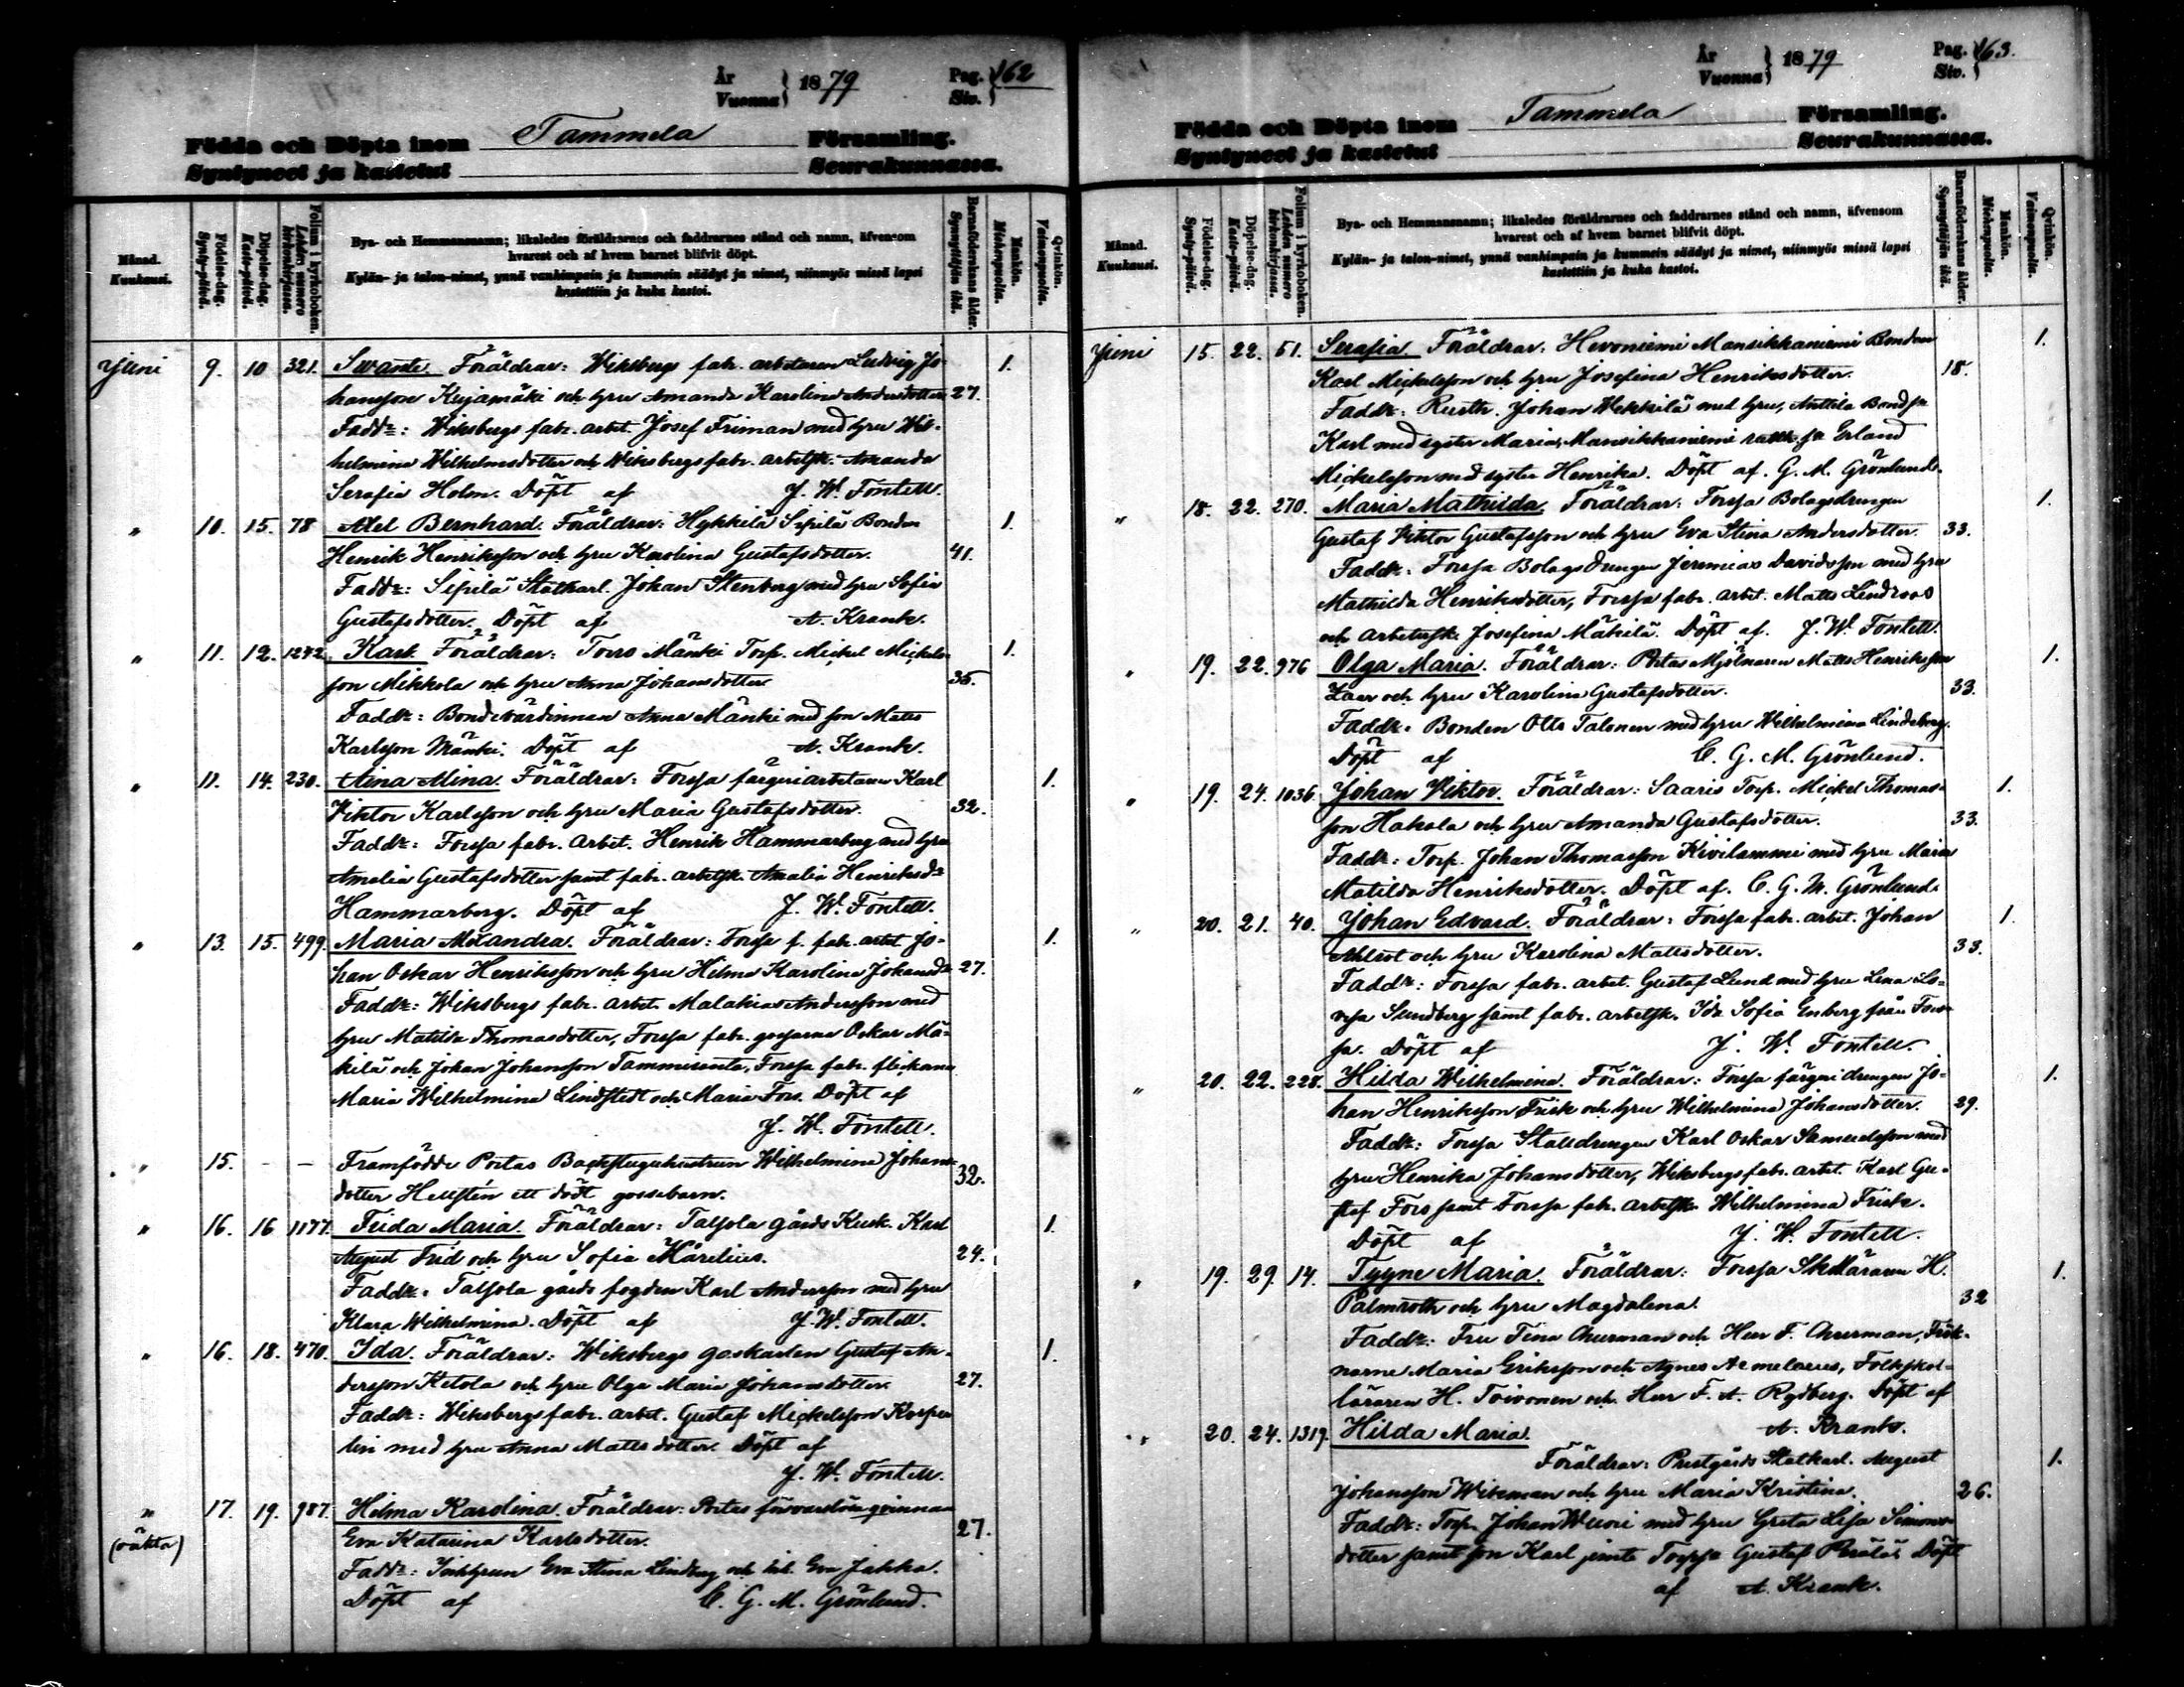 År
Vuonna } 1879
Pag.
Siv. } 162
Födda och Döpta inom Tammela Församling.
Syntyneet ja kastetut Seurakunnassa.
Månad.
Kuukausi.
Födelse-dag.
Synty-päivä.
Döpelse-dag.
Kaste-päivä.
Folium i kyrkoboken.
Lehden numero
kirkonkirjassa.
Bya- och Hemmansnamn; likaledes föräldrarnes och faddrarnes stånd och namn, äfvensom
hvarest och af hvem barnet blifvit döpt.
Kylän- ja talon-nimet, ynnä vanhimpain ja kummein säädyt ja nimet, niinmyös missä lapsi
kastettiin ja kuka kastoi.
Barnaföderskans ålder.
Synnyttäjän ikä.
Mankön.
Miehenpuolta.
Qvinkön.
Vaimonpuolta.
Juni 9. 10 321. Swante. Föräldrar: Wiksbergs fabr. arbetaren Ludvig Jo- 1.
hansson Kujamäki och hru Amanda Karolina Andersdotter 27.
Faddr: Wiksbergs fabr. arbet. Josef Friman med hru Wil-
helmina Wilhelmsdotter och Wiksbergs fabr. arbetsk. Amanda
Serafia Holm. Döpt af J. W. Fontell.
" 10. 15. 78 Axel Bernhard. Föräldrar: Hykkilä Sipilä Bonden 1.
Henrik Henriksson och hru Karolina Gustafsdotter. 41.
Faddr: Sipilä Statkarl. Johan Stenberg med hru Sofia
Gustafsdotter. Döpt af A. Krank.
" 11. 12. 1242. Karl. Föräldrar: Torro Mänki Torp. Mickel Mickels- 1.
son Mikkola och hru Anna Johansdotter 35.
Faddr: Bondevärdinnan Anna Mänki med son Matts
Karlsson Mänki. Döpt af A. Krank.
" 11. 14. 230. Aina Mina. Föräldrar: Forssa färgeriarbetaren Karl 1.
Viktor Karlsson och hru Maria Gustafsdotter. 32.
Faddr: Forssa fabr. arbet. Henrik Hammarberg med hru
Amelia Gustafsdotter samt fabr. arbetsk. Amalia Henriksdr
Hammarberg. Döpt af J. W. Fontell.
" 13. 15. 499. Maria Alexandra. Föräldrar: Forssa f. fabr. arbet Jo- 1.
han Oskar Henriksson och hru Hilma Karolina Johansdr 27.
Faddr: Wiksbergs fabr. arbet. Malakias Andersson med
hru Matilda Thomasdotter, Forssa fabr. gossarne Oskar Mä-
kilä och Johan Johansson Tammisanta, Forssa fabr. flickans
Maria Wilhelmina Lindstedt och Maria Fors. Döpt af
J. W. Fontell.
" 15. - - Framfödde Portas Backstuguhustrun Wilhelmina Johans-
dotter Hellstén ett dödt gossebarn. 32.
" 16. 16 1177. Frida Maria. Föräldrar: Talsola gårds Kusk. Karl 1.
August Frid och hru Sofia Mårelius. 24.
Faddr: Talsola gårds fogden Karl Andersson med hru
Klara Wilhelmina. Döpt af J. W. Fontell.
" 16. 18. 470. Ida. Föräldrar: Wiksbergs goskarlen Gustaf An- 1.
dersson Ketola och hru Olga Maria Johansdotter. 27.
Faddr: Wiksbergs fabr. arbet. Gustaf Mickelsson Korpe
med hru Anna Mattsdotter. Döpt af
J. W. Fontell.
" 17. 19. 987. Hilma Karolina. Föräldrar: Portas försvarslösa qvinnan
(oäkta) Eva Katarina Karlsdotter. 27.
Faddr: Eva Stina Lindberg och Eva Jakka.
Döpt af C. G. M. Grönlund.
År
Vuonna } 1879
Pag.
Siv. } 163.
Födda och Döpta inom Tammela Församling.
Syntyneet ja kastetut Seurakunnassa.
Månad.
Kuukausi.
Födelse-dag.
Synty-päivä.
Döpelse-dag.
Kaste-päivä.
Folium i kyrkoboken.
Lehden numero
kirkonkirjassa.
Bya- och Hemmansnamn; likaledes föräldrarnes och faddrarnes stånd och namn, äfvensom
hvarest och af hvem barnet blifvit döpt.
Kylän- ja talon-nimet, ynnä vanhimpain ja kummein säädyt ja nimet, niinmyös missä lapsi
kastettiin ja kuka kastoi.
Barnaföderskans ålder.
Synnyttäjän ikä.
Mankön.
Miehenpuolta.
Qvinkön.
Vaimonpuolta.
Juni 15. 22. 61. Serafia. Föräldrar: Hevoniemi Mansikkaniemi Bonden 1.
Karl Mickelsson och hru Josefina Henriksdotter. 18.
Faddr: Rusth. Johan Wekkilä med hru, Anttila Bondsn
Karl med syster Maria, Mansikkaniemi Erland
Mickelsson med syster Henrika. Döpt af. G. M. Grönlund.
" 18. 22. 270. Maria Mathilda. Föräldrar: Forssa Bolagsdrengen 1.
Gustaf Viktor Gustafsson och hru Eva Stina Andersdotter. 33.
Faddr: Forssa Bolagsdrengen Jeremias Davidsson med hru
Mathilda Henriksdotter, Forssa fabr. arbet. Matts Lindroos
och arbetersk. Josefina Mäkilä. Döpt af. J. W. Fontell.
" 19. 22. 976 Olga Maria. Föräldrar: Portas Mjölnaren Matts Henriksson 1.
och hru Karolina Gustafsdotter. 33.
Faddr: Bonden Otto Talonen med hru Wilhelmina Lindeberg.
Döpt af C. G. M. Grönlund.
" 19. 24. 1036. Johan Viktor. Föräldrar: Saaris Torp. Mickel Thomas- 1.
son Hakala och hru Amanda Gustafsdotter. 33.
Faddr: Torp. Johan Thomasson Kivilammi med hru Maria
Matilda Henriksdotter. Döpt af. C. G. M. Grönlund.
" 20. 21. 40. Johan Edvard. Föräldrar: Forssa fabr. arbet. Johan 1.
Ahlrot och hru Karolina Mattsdotter. 33.
Faddr: Forssa fabr. arbet. Gustaf Lund med hru Lena Lo-
visa Sundberg samt fabr. arbetsk. Ida Sofia Enberg från Fors-
sa. Döpt af J. W. Fontell.
" 20. 22. 228. Hilda Wilhelmina. Föräldrar: Forssa färgeridrengen Jo- 1.
han Henriksson Frisk och hru Wilhelmina Johansdotter. 29.
Faddr: Forssa Stalldrengen Karl Oskar Samuelsson med
hru Henrika Johansdotter, Wiksbergs fabr. arbet. Karl Gu-
staf Fors samt Forssa fabr. arbetsk. Wilhelmina Frisk.
Döpt af J. W. Fontell.
" 19. 29. 14. Tyyne Maria. Föräldrar: Forssa Skollärarn H. 1.
Palmroth och hru Magdalena. 32
Faddr: Fru Tina Churman och Herr F. Churman, Frök-
narne Maria Eriksson och Agnes Aemelaeus, Folkskol-
läraren H. Toivonen och Herr F. A. Rydberg. Döpt af
A. Krank.
" 20. 24. 1319. Hilda Maria.
Föräldrar: Prestgårds Statkarl. August 1.
Johansson Wikman och hru Maria Kristina. 26.
Faddr: Torp. Johan Wuori med hru Greta Lisa Simons-
dotter samt son Karl jemte Gustaf Perälä Döpt
af A. Krank.